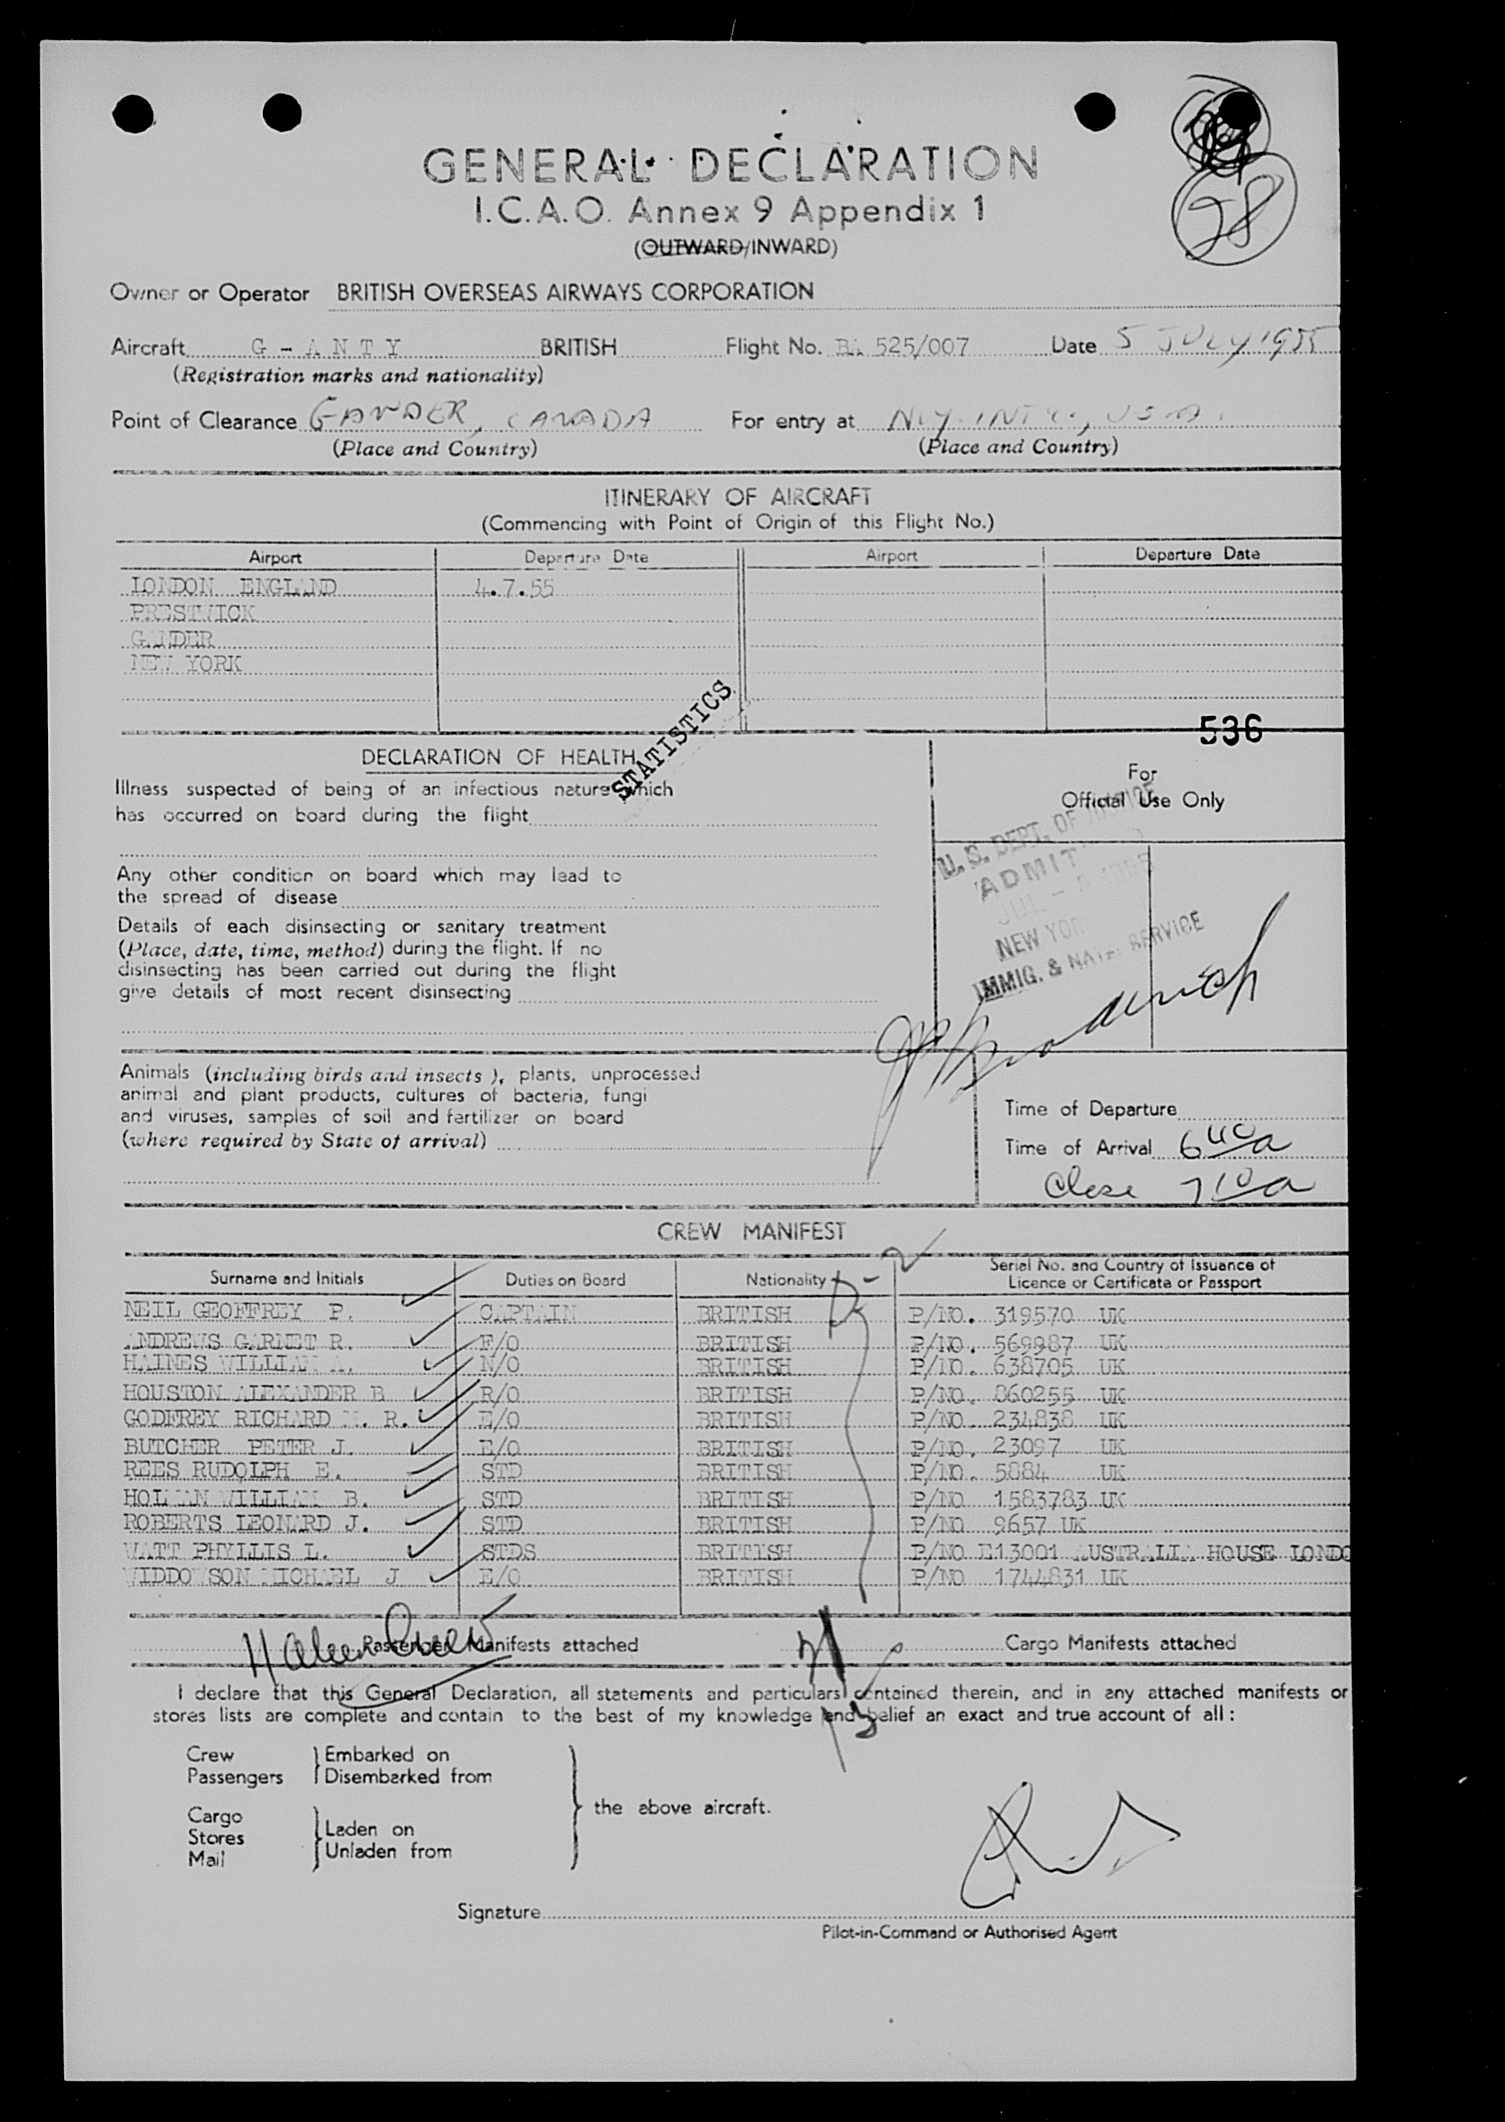 28
GENERAL DECLARATION
I.C.A.O. Annex 9 Appendix 1
(OUTWARD/INWARD)
Owner or Operator BRITISH OVERSEAS AIRWAYS CORPORATION
Aircraft G - A N T Y BRITISH Flight No. BA 525/007 Date 5 JULY 1955
(Registration marks and nationality)
Point of Clearance GANDER, CANADA For entry at N.Y. INT'L., U.S.A.
(Place and Country) (Place and Country)
ITINERARY OF AIRCRAFT
(Commencing with Point of Origin of this Flight No.)
Airport Departure Date Airport Departure Date
LONDON ENGLAND 4.7.55
PRESTWICK
GANDER
NEW YORK
STATISTICS
536
DECLARATION OF HEALTH
For
Official Use Only
Illness suspected of being of an infectious nature which
has occurred on board during the flight
U. S. DEPT. OF JUSTICE
ADMIT
JUL
NEW YOR
IMMIG. & NAT. SERVICE
Any other condition on board which may lead to
the spread of disease
Details of each disinsecting or sanitary treatment
(Place, date, time, method) during the flight. If no
disinsecting has been carried out during the flight
give details of most recent disinsecting
Animals (including birds and insects), plants, unprocessed
animal and plant products, cultures of bacteria, fungi
and viruses, samples of soil and fertilizer on board
(where required by State of arrival)
Time of Departure
Time of Arrival 6 40 a
Close 7 10 a
CREW MANIFEST
Surname and Initials Duties on Board Nationality Serial No. and Country of Issuance of
Licence or Certificate or Passport
NEIL GEOFFREY P. CAPTAIN BRITISH P/NO. 319570 UK
ANDREWS GARNET R. F/O BRITISH P/NO. 569987 UK
HAINES WILLIAM A. N/O BRITISH P/NO. 638705 UK
HOUSTON ALEXANDER B R/O BRITISH P/NO. 860255 UK
GODFREY RICHARD R. E/O BRITISH P/NO. 234838 UK
BUTCHER PETER J. E/O BRITISH P/NO. 23097 UK
REES RUDOLPH E. STD BRITISH P/NO. 5884 UK
HOLMAN WILLIAM B. STD BRITISH P/NO 1583783 UK
ROBERTS LEONARD J. STD BRITISH P/NO 9657 UK
WATT PHYLLIS L. STDS BRITISH P/NO E13001 AUSTRALIA HOUSE LONDO
WIDDOWSON MICHAEL J E/O BRITISH P/NO 1744831 UK
11 Alien Crew
Passenger Manifests attached Cargo Manifests attached
I declare that this General Declaration, all statements and particulars contained therein, and in any attached manifests or
stores lists are complete and contain to the best of my knowledge and belief an exact and true account of all :
Crew Embarked on
Passengers Disembarked from
the above aircraft.
Cargo
Stores Laden on
Mail Unladen from
Signature
Pilot-in-Command or Authorised Agent